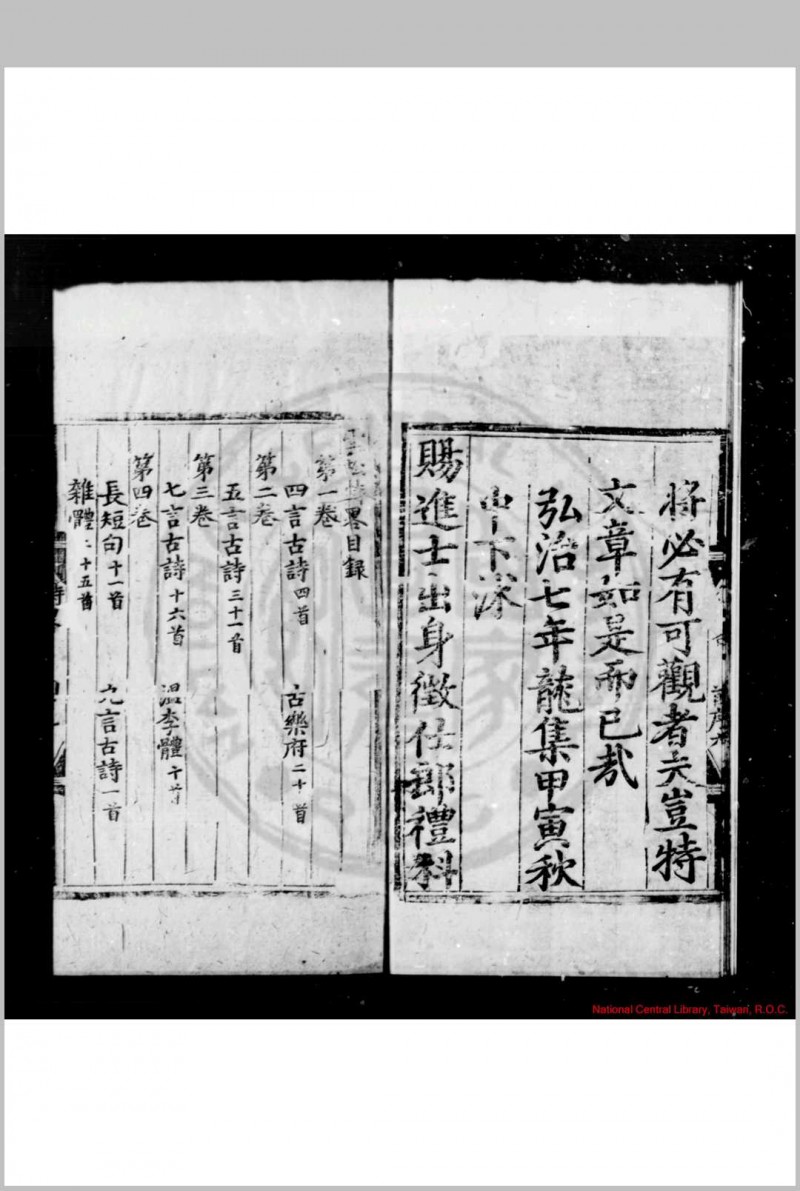 將必有可觀者夫豈特
文章如是而已哉
弘治七年龍集甲寅秋
中下浣
賜進士出身徵仕郎禮科
詩畧目録
第一卷
四言古詩四首 古樂府二十首
第二卷
五言古詩三十一首
第三卷
七言古詩十六首 温李體十首
第四卷
長短句十一首 九言古詩一首
雜體二十五首
National Central Library, Taiwan, R.O.C.